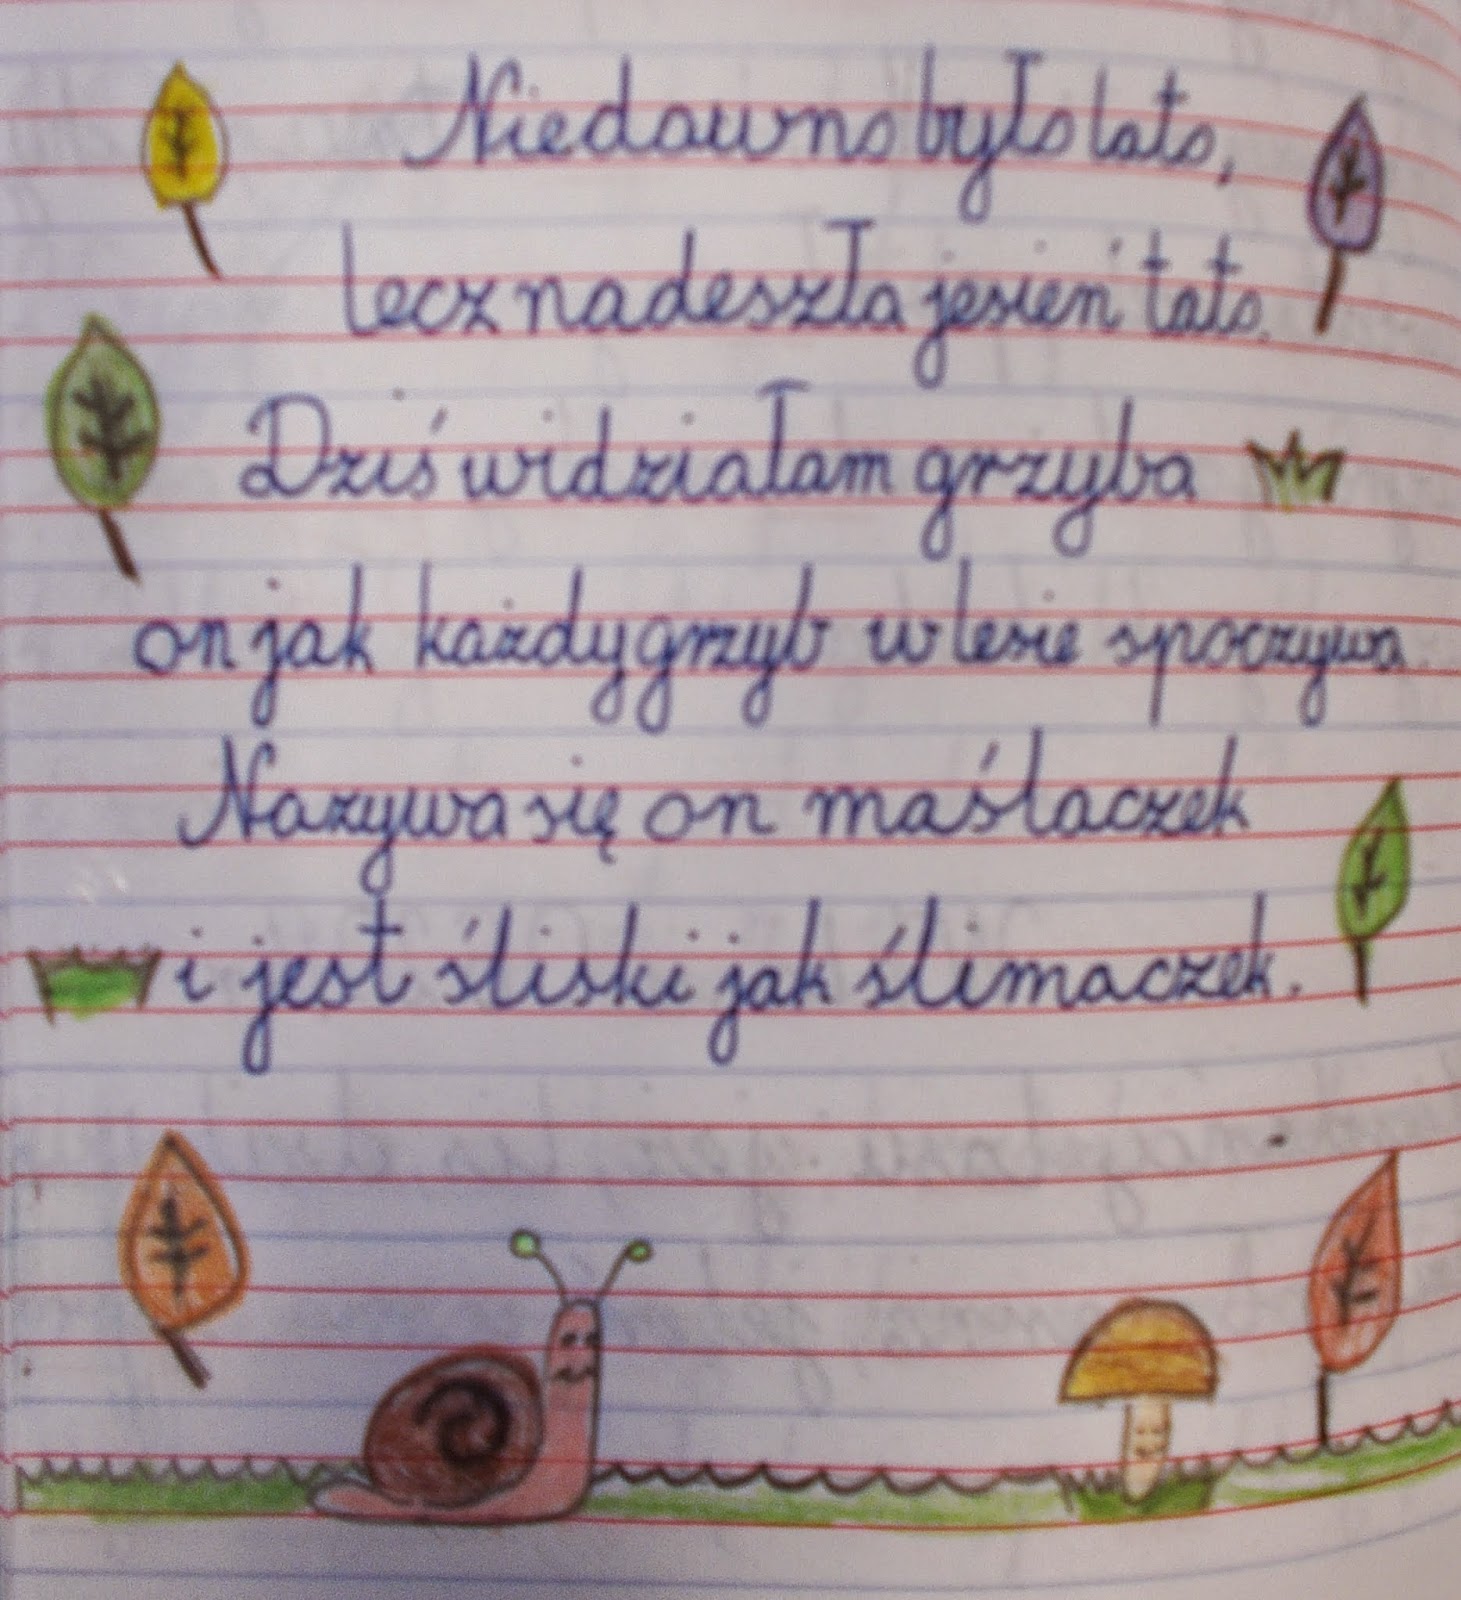 Niedawno było lato,
lecz nadeszła jesień tato.
Dziś widziałam grzyba
on jak każdy grzyb w lesie spoczywa.
Nazywa się on maślaczek
i jest śliski jak ślimaczek.